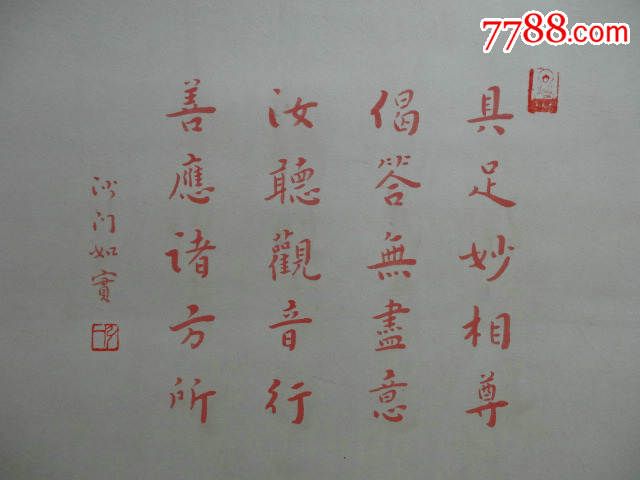 7788.com
具足妙相尊
偈答無盡意
汝聽觀音行
善應诸方所
沙门如實